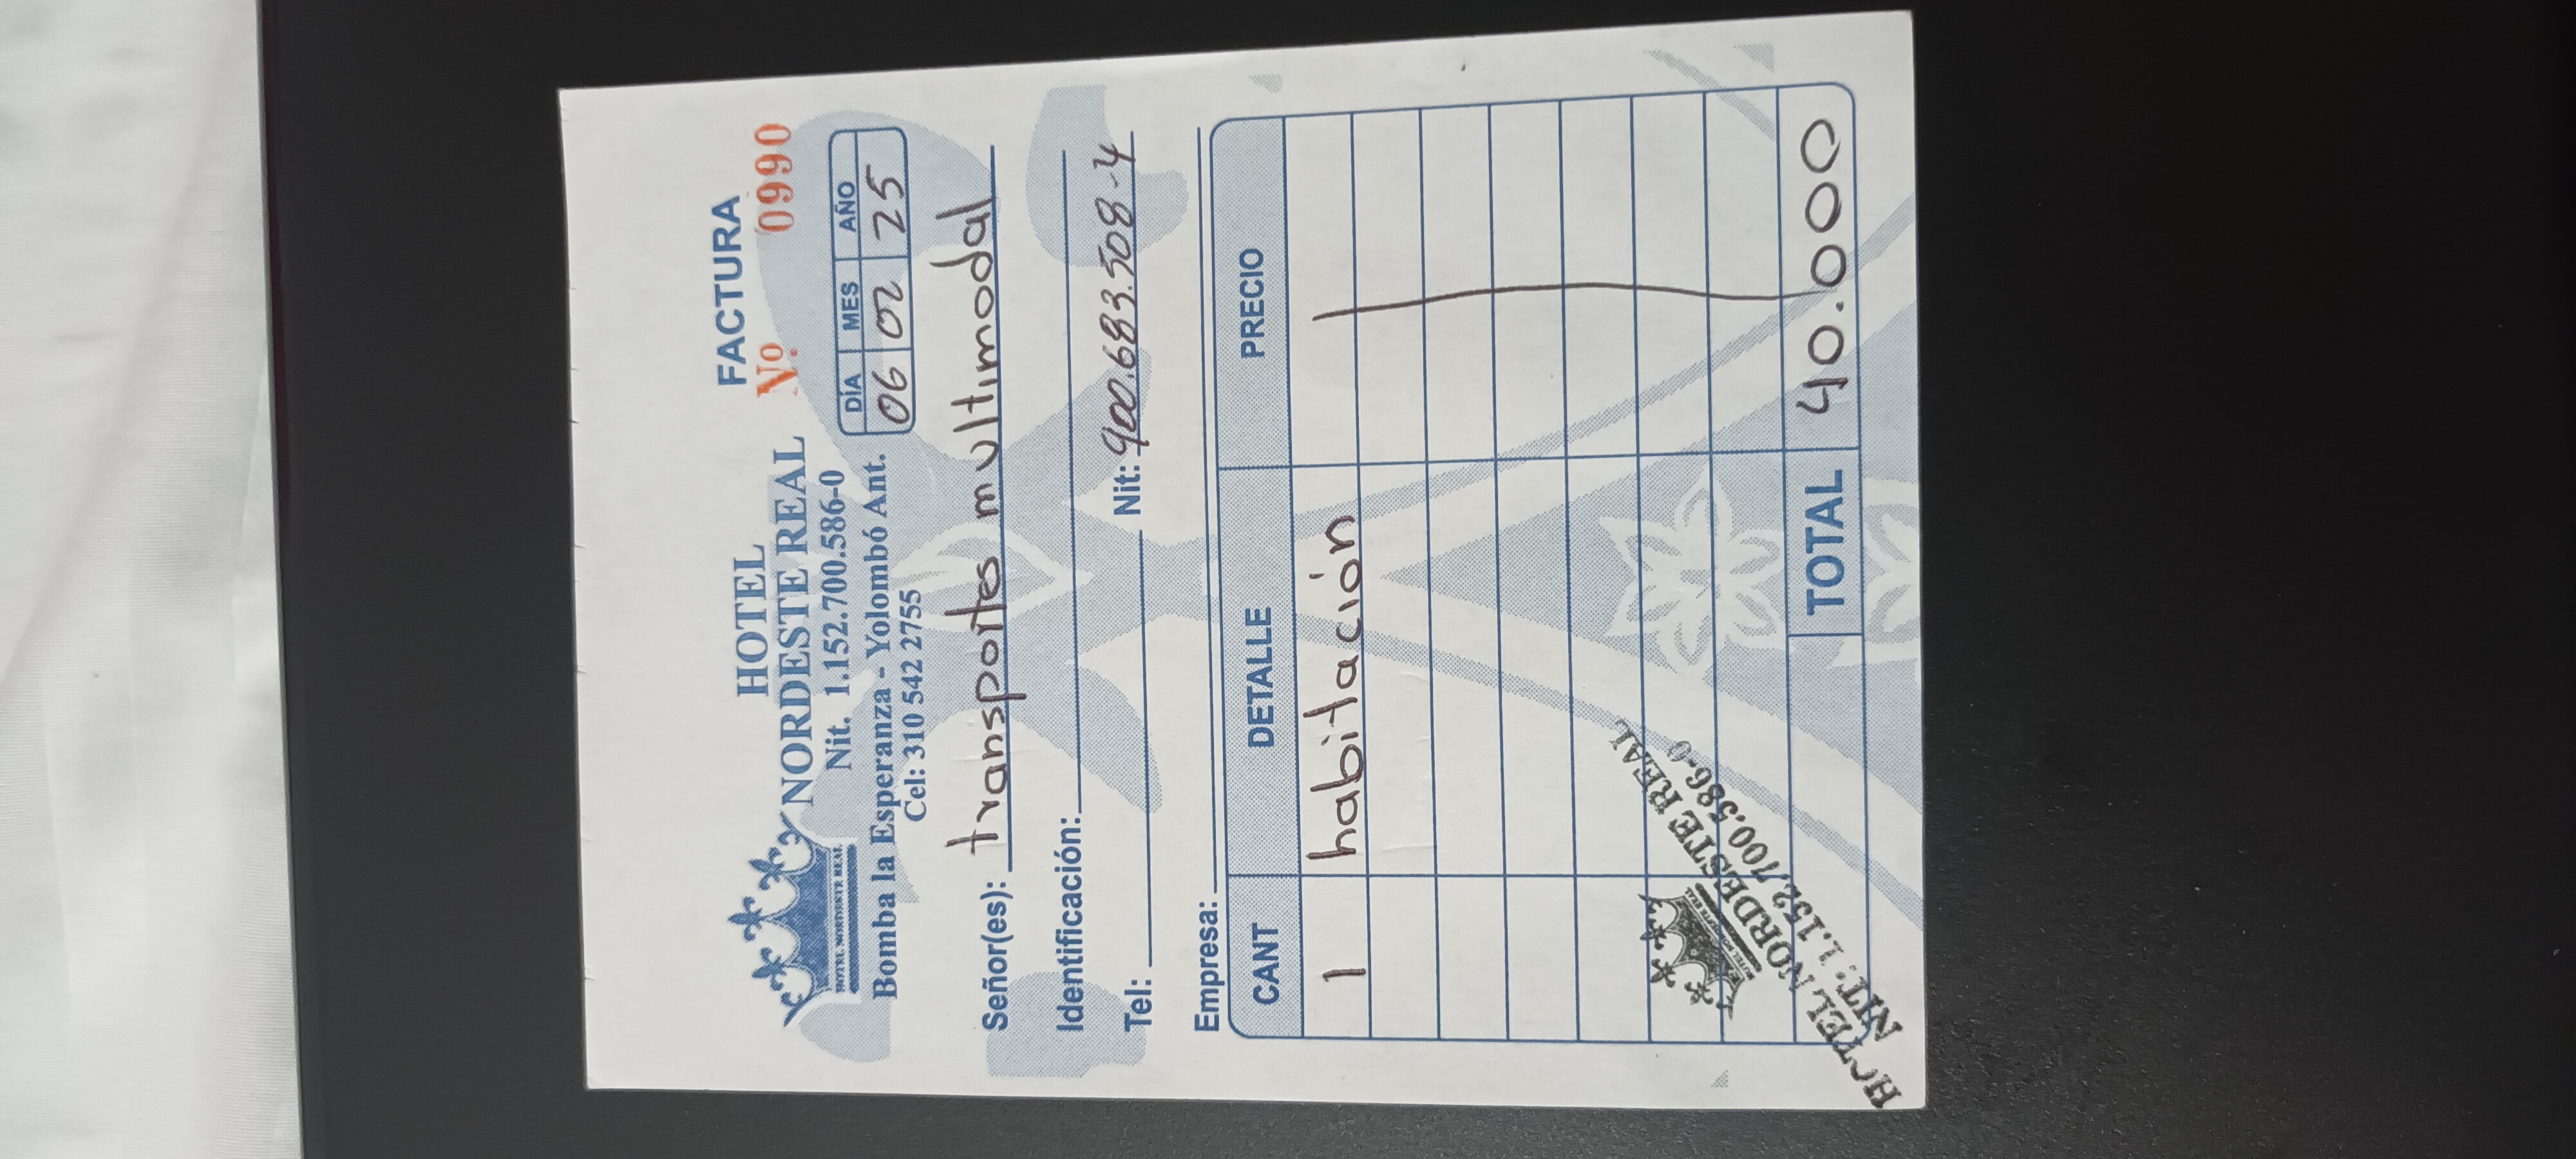 HOTEL
NORDESTE REAL
HOTEL NORDESTE REAL
Nit. 1.152.700.586-0
Bomba la Esperanza - Yolombó Ant.
Cel: 310 542 2755
FACTURA
No. 0990
DÍA MES AÑO
06 02 25
Señor(es): transportes multimodal
Identificación:
Tel: Nit: 900.683.508-4
Empresa:
CANT DETALLE PRECIO
1 habitación
TOTAL 40.000
HOTEL NORDESTE REAL
NIT: 1.152.700.586-0